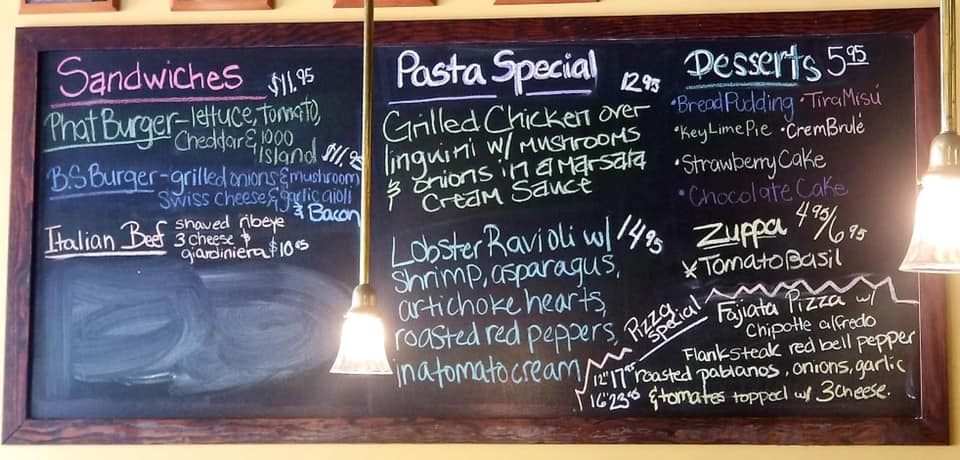 Sandwiches $11.95
Phat Burger - lettuce, tomato,
Cheddar & 1000
island $11.95
B.S Burger - grilled onions & mushroom
Swiss cheese & garlic aioli
& Bacon
Italian Beef shaved ribeye
3 cheese &
giardiniera $10.95
Pasta Special 12.95
Grilled Chicken over
linguini w/ mushrooms
& onions in a Marsala
Cream Sauce
Lobster Ravioli w/ 14.95
shrimp, asparagus,
artichoke hearts,
roasted red peppers,
in a tomato cream
Desserts 5.95
•Bread Pudding •Tira Misú
•Key Lime Pie •Crem Brulé
•Strawberry Cake
•Chocolate Cake
Zuppa 4.95/6.95
*Tomato Basil
Pizza
special
Fajiata Pizza w/
Chipotle alfredo
Flanksteak red bell pepper
12" 17.95 roasted pablanos, onions, garlic
16" 23.95 & tomates topped w/ 3 cheese.